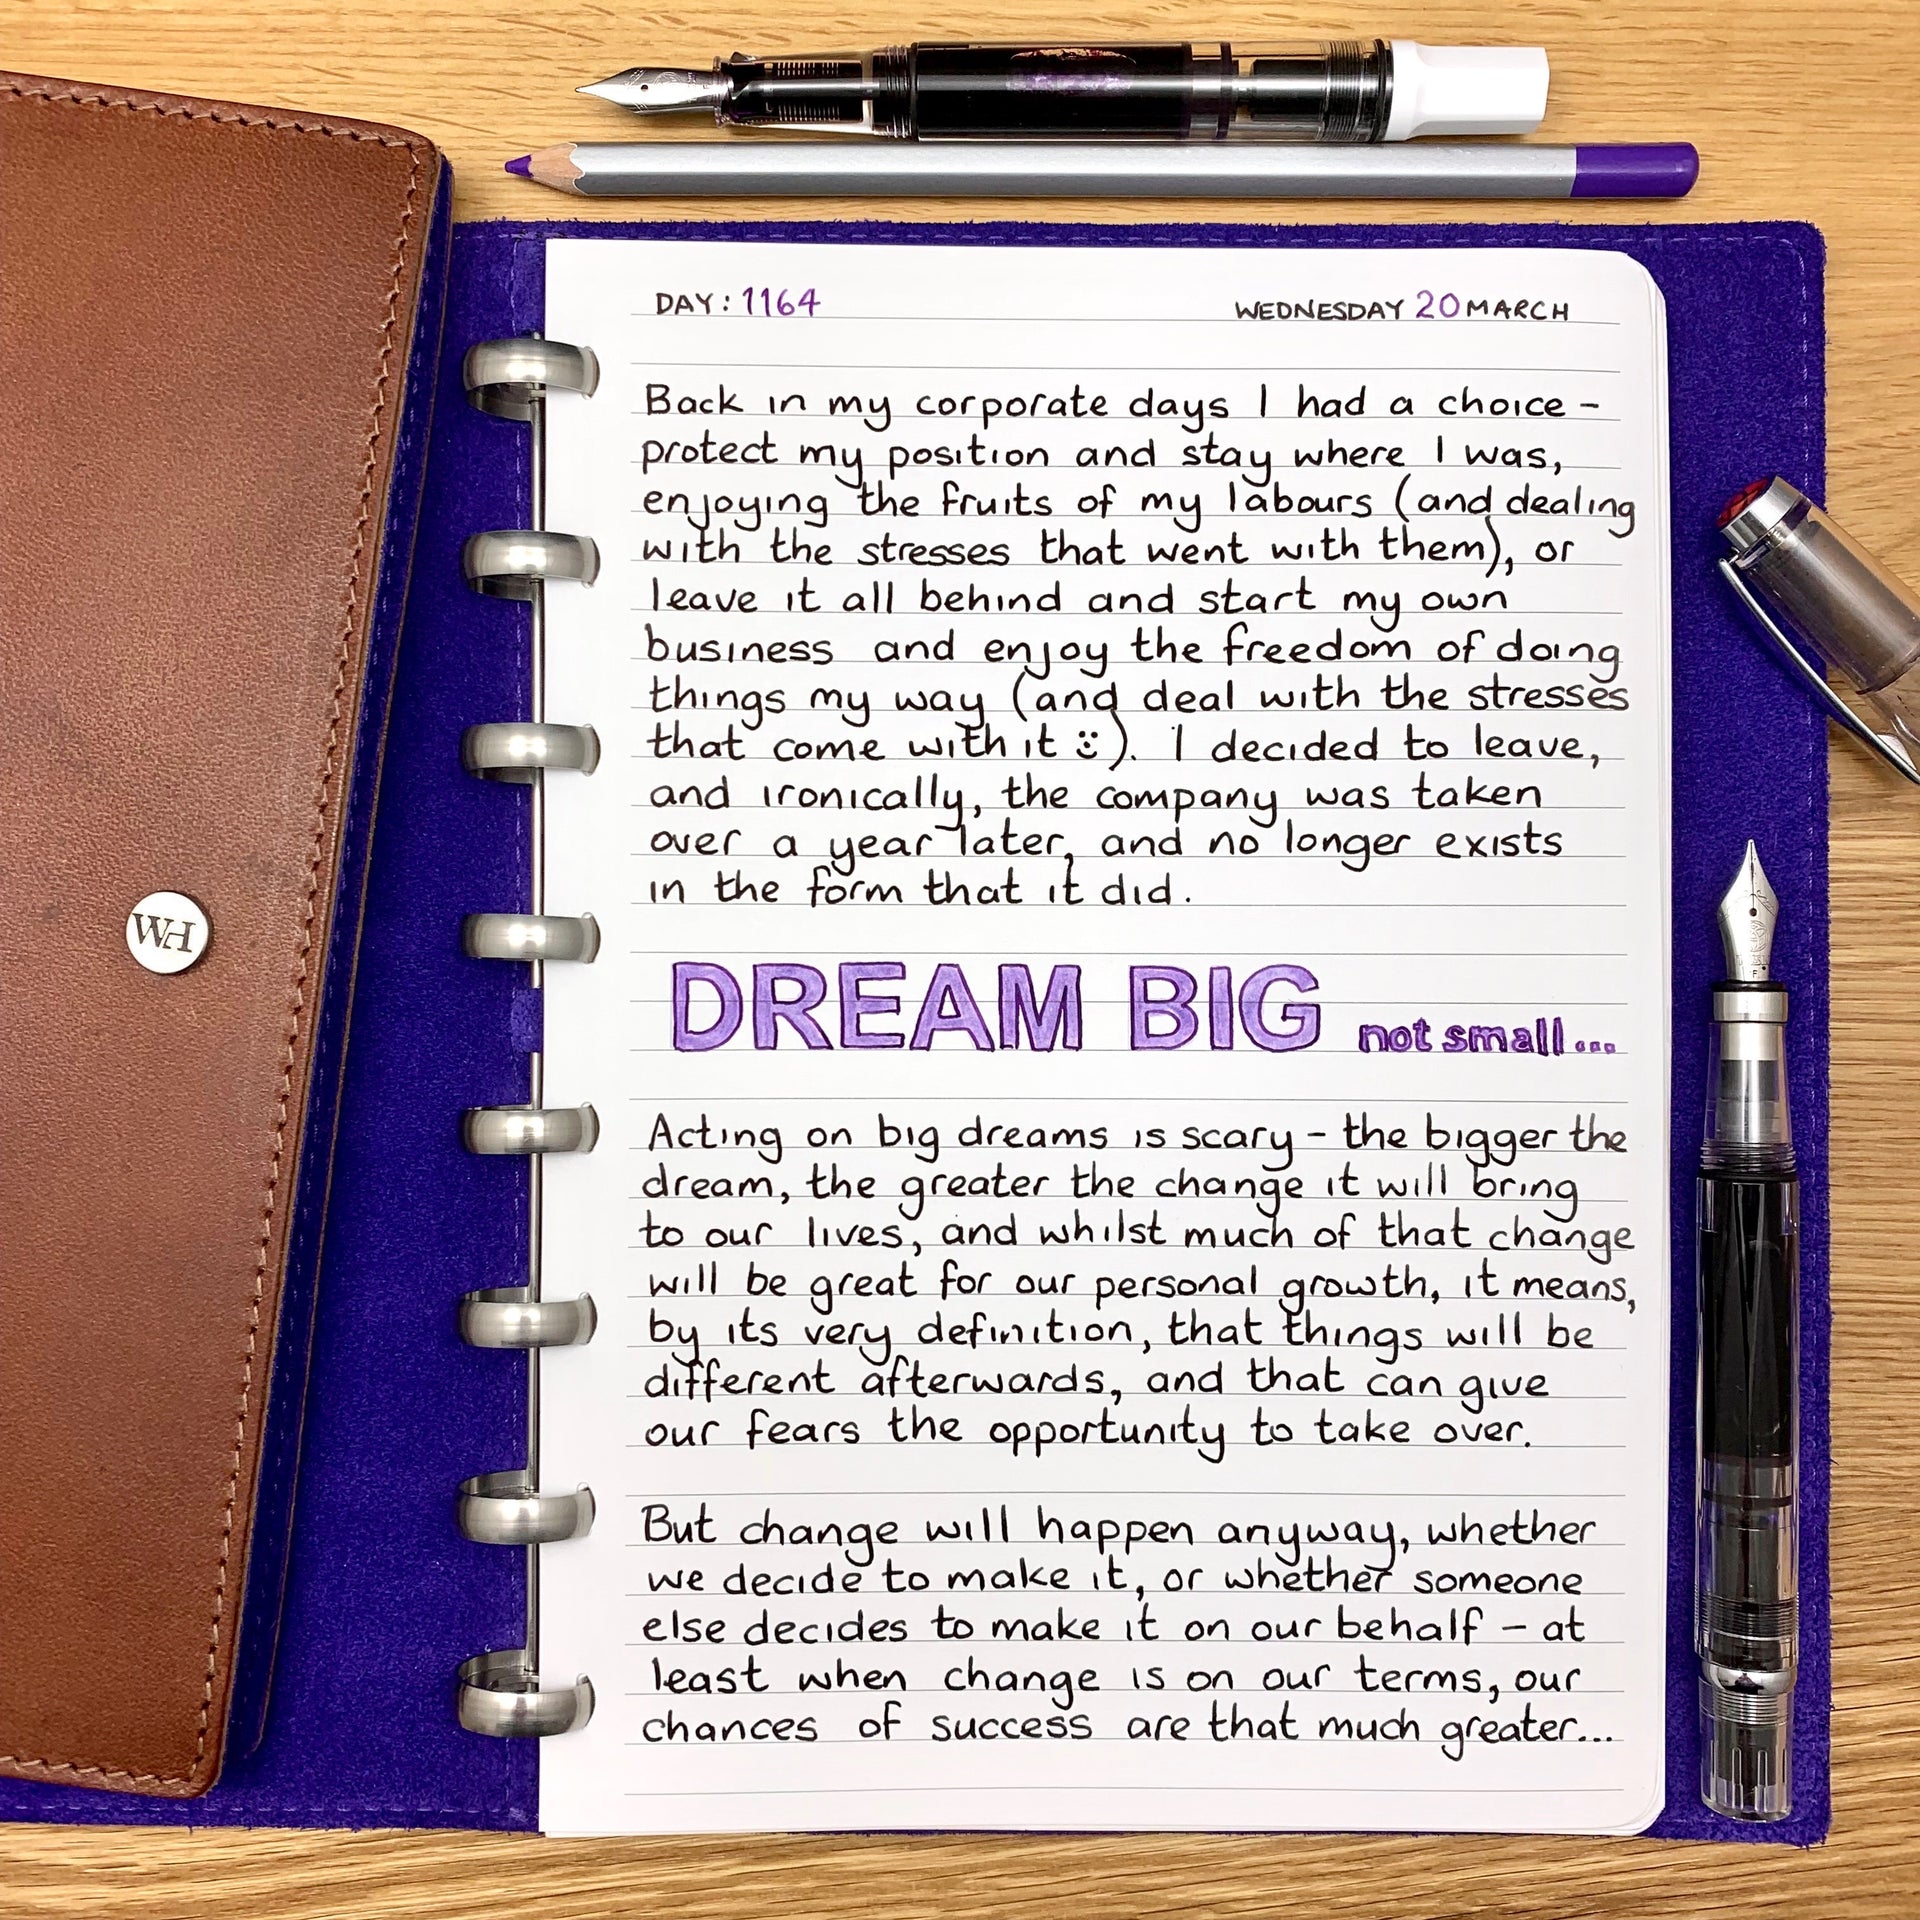 DAY: 1164
WEDNESDAY 20 MARCH
Back in my corporate days I had a choice -
protect my position and stay where I was,
enjoying the fruits of my labours (and dealing
with the stresses that went with them), or
leave it all behind and start my own
business and enjoy the freedom of doing
things my way (and deal with the stresses
that come with it :)). I decided to leave,
and ironically, the company was taken
over a year later, and no longer exists
in the form that it did.
DREAM BIG not small...
Acting on big dreams is scary - the bigger the
dream, the greater the change it will bring
to our lives, and whilst much of that change
will be great for our personal growth, it means,
by its very definition, that things will be
different afterwards, and that can give
our fears the opportunity to take over.
But change will happen anyway, whether
we decide to make it, or whether someone
else decides to make it on our behalf - at
least when change is on our terms, our
chances of success are that much greater...
WH
F